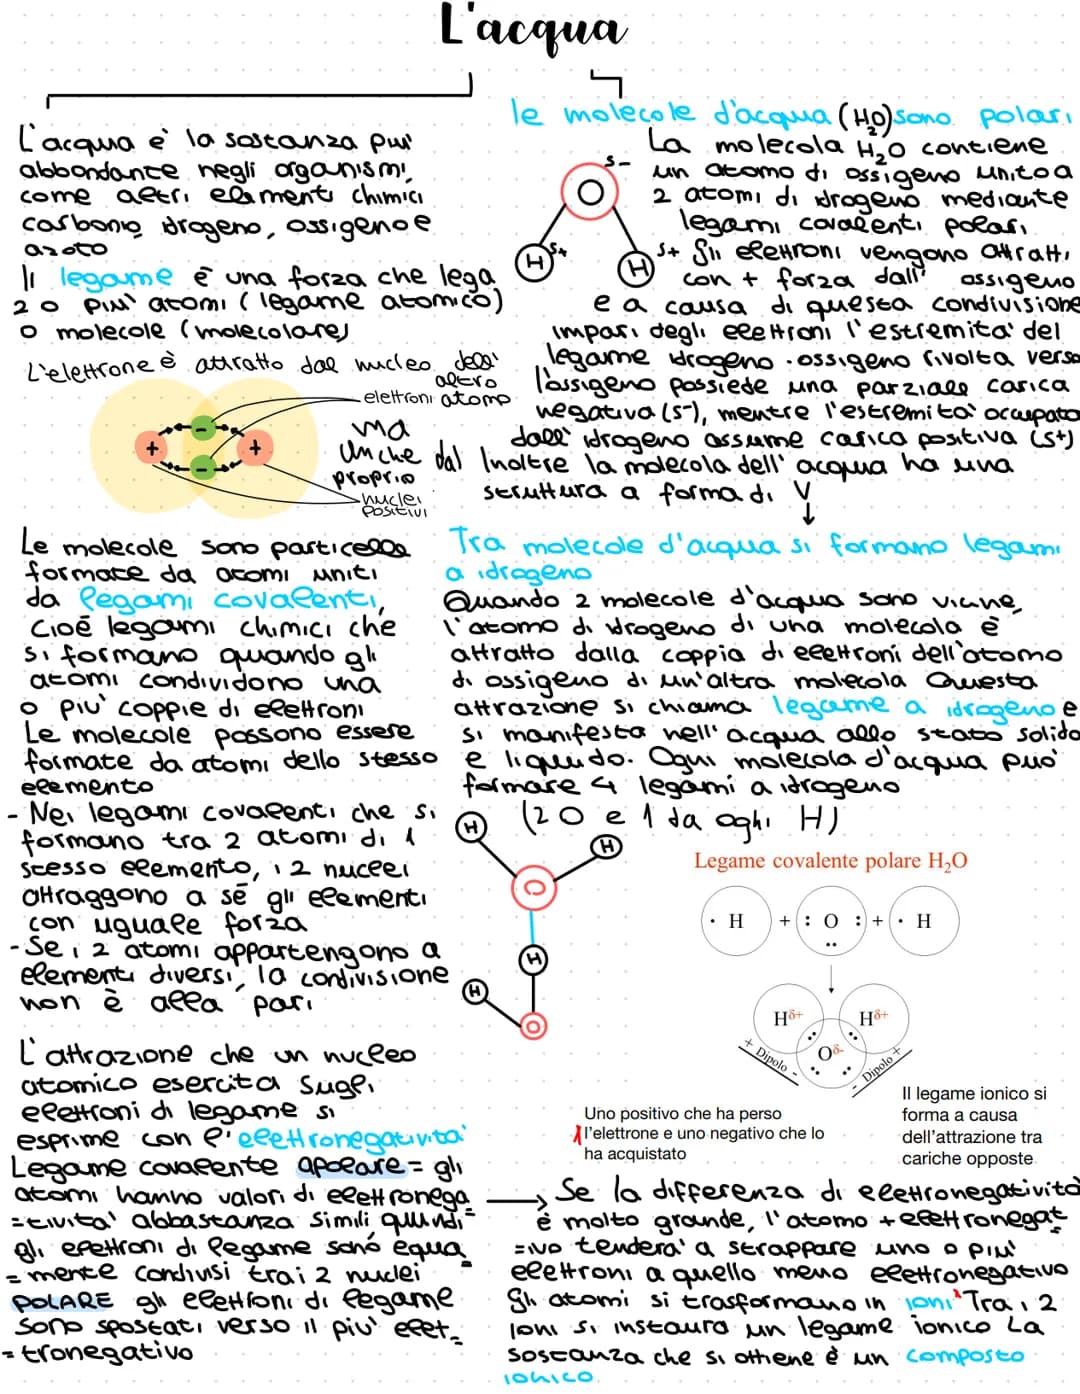 L'acqua
L'acqua è la sostanza più
abbondante negli organismi,
come altri elementi chimici
carbonio, idrogeno, ossigeno e
azoto
Il legame è una forza che lega
2 o più atomi (legame atomico)
o molecole (molecolare)
L'elettrone è attratto dal nucleo dell'
altro
atomo
ma
anche dal
proprio
elettroni
nuclei
positivi
+
-
-
+
Le molecole sono particelle
formate da atomi uniti
da legami covalenti,
cioè legami chimici che
si formano quando gli
atomi condividono una
o più coppie di elettroni
Le molecole possono essere
formate da atomi dello stesso
elemento
- Nei legami covalenti che si
formano tra 2 atomi di 1
stesso elemento, i 2 nuclei
attraggono a sé gli elementi
con uguale forza
- Se i 2 atomi appartengono a
elementi diversi, la condivisione
non è alla pari
L'attrazione che un nucleo
atomico esercita sugli
elettroni di legame si
esprime con l'elettronegatività
Legame covalente apolare = gli
atomi hanno valori di elettronega
=tività abbastanza simili quindi
gli elettroni di legame sono equa
=mente condivisi tra i 2 nuclei
POLARE gli elettroni di legame
sono spostati verso il più elet_
=tronegativo
le molecole d'acqua (H2O) sono polari
La molecola H2O contiene
un atomo di ossigeno unito a
2 atomi di idrogeno mediante
legami covalenti polari.
Gli elettroni vengono attratti
con + forza dall' ossigeno
e a causa di questa condivisione
impari degli elettroni l'estremità del
legame idrogeno-ossigeno rivolta verso
l'ossigeno possiede una parziale carica
negativa (s-), mentre l'estremità occupata
dall' idrogeno assume carica positiva (s+)
Inoltre la molecola dell' acqua ha una
struttura a forma di V
S-
O
H
S+
H
S+
Tra molecole d'acqua si formano legami
a idrogeno
Quando 2 molecole d'acqua sono vicine,
l'atomo di idrogeno di una molecola è
attratto dalla coppia di elettroni dell'atomo
di ossigeno di un'altra molecola Questa
attrazione si chiama legame a idrogeno e
si manifesta nell' acqua allo stato solido
e liquido. Ogni molecola d'acqua può
formare 4 legami a idrogeno
(2 O e 1 da oghi H)
H
H
O
H
H
O
Legame covalente polare H₂O
· H + : O : + · H
Hδ+ Hδ+
Oδ-
+ Dipolo -
- Dipolo +
Uno positivo che ha perso
l'elettrone e uno negativo che lo
ha acquistato
Il legame ionico si
forma a causa
dell'attrazione tra
cariche opposte
Se la differenza di elettronegatività
è molto grande, l'atomo + elettronegat
=ivo tenderà a strappare uno o più
elettroni a quello meno elettronegativo
Gli atomi si trasformano in ioni Tra i 2
ioni si instaura un legame ionico La
sostanza che si ottiene è un composto
ionico